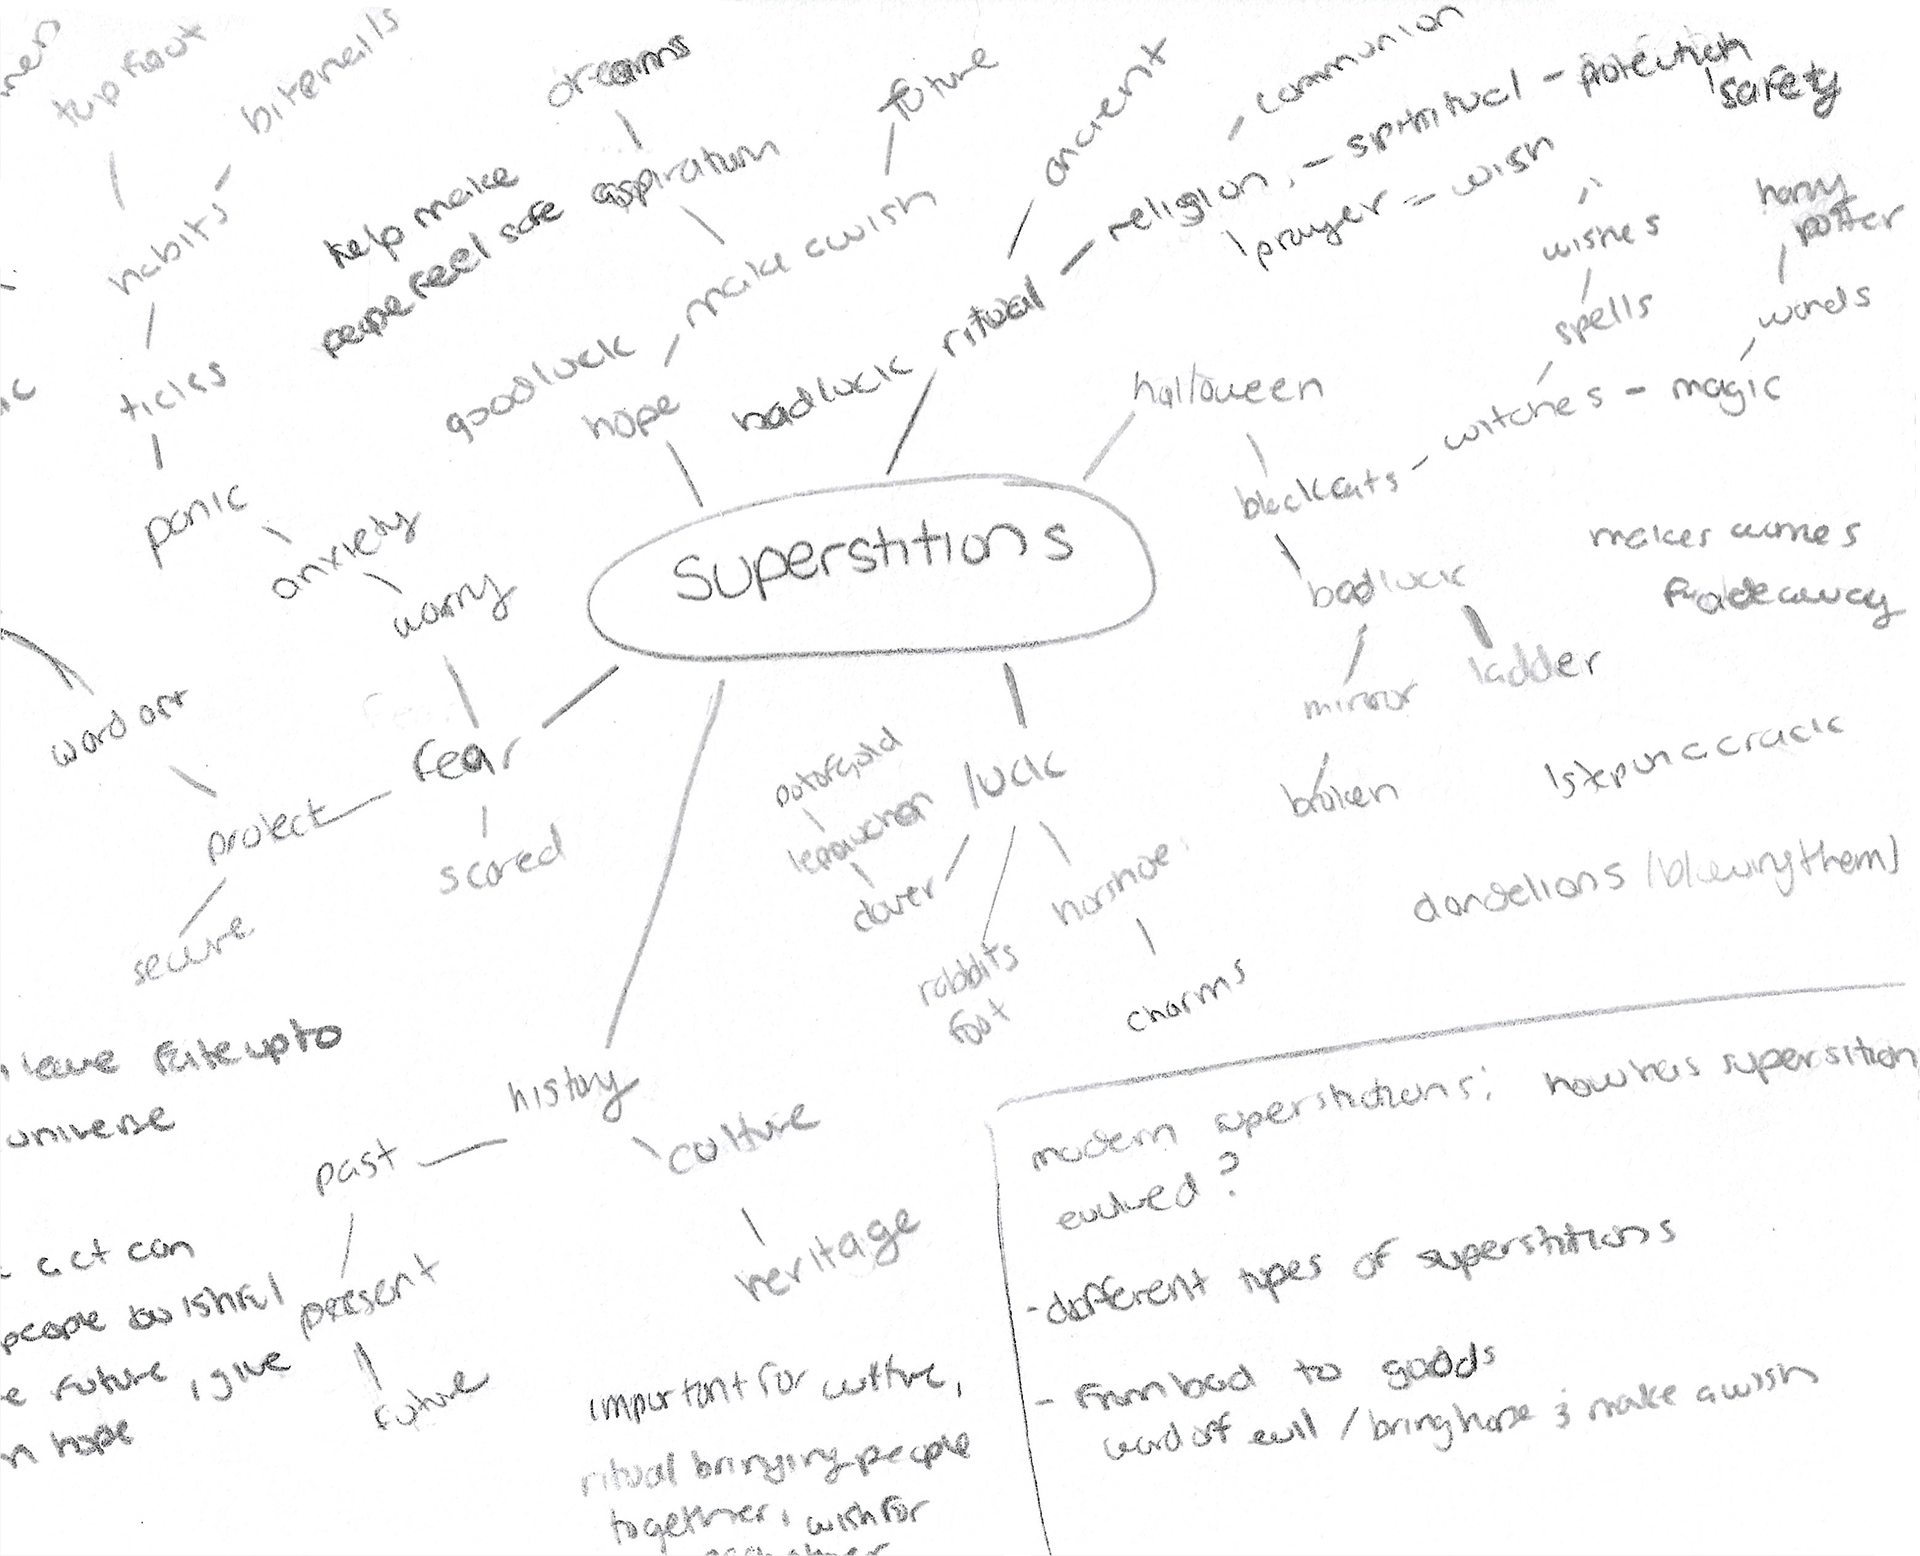 tap foot
bite nails
dreams
future
ancient
communion
habits
help make
people feel safe
aspiration
make a wish
ritual
religion - spiritual - protection
safety
prayer = wish
wishes
harry
potter
spells
words
ticks
good luck
hope
bad luck
halloween
black cats - witches - magic
panic
anxiety
worry
Superstitions
bad luck
makes wishes
fade away
mirror
ladder
broken
1 step on a crack
dandelions (blowing them)
ward off
fear
protect
scared
secure
luck
pot of gold
leprauchan
clover
horshoe
rabbits
foot
charms
leave fate up to
universe
history
past
culture
present
heritage
future
act can
people be wishful
e future, give
n hope
important for culture,
ritual bringing people
together, wish for
modern superstitions: how has supersition
evolved?
- different types of superstitions
- From bad to goods
ward off evil / bring hope & make a wish